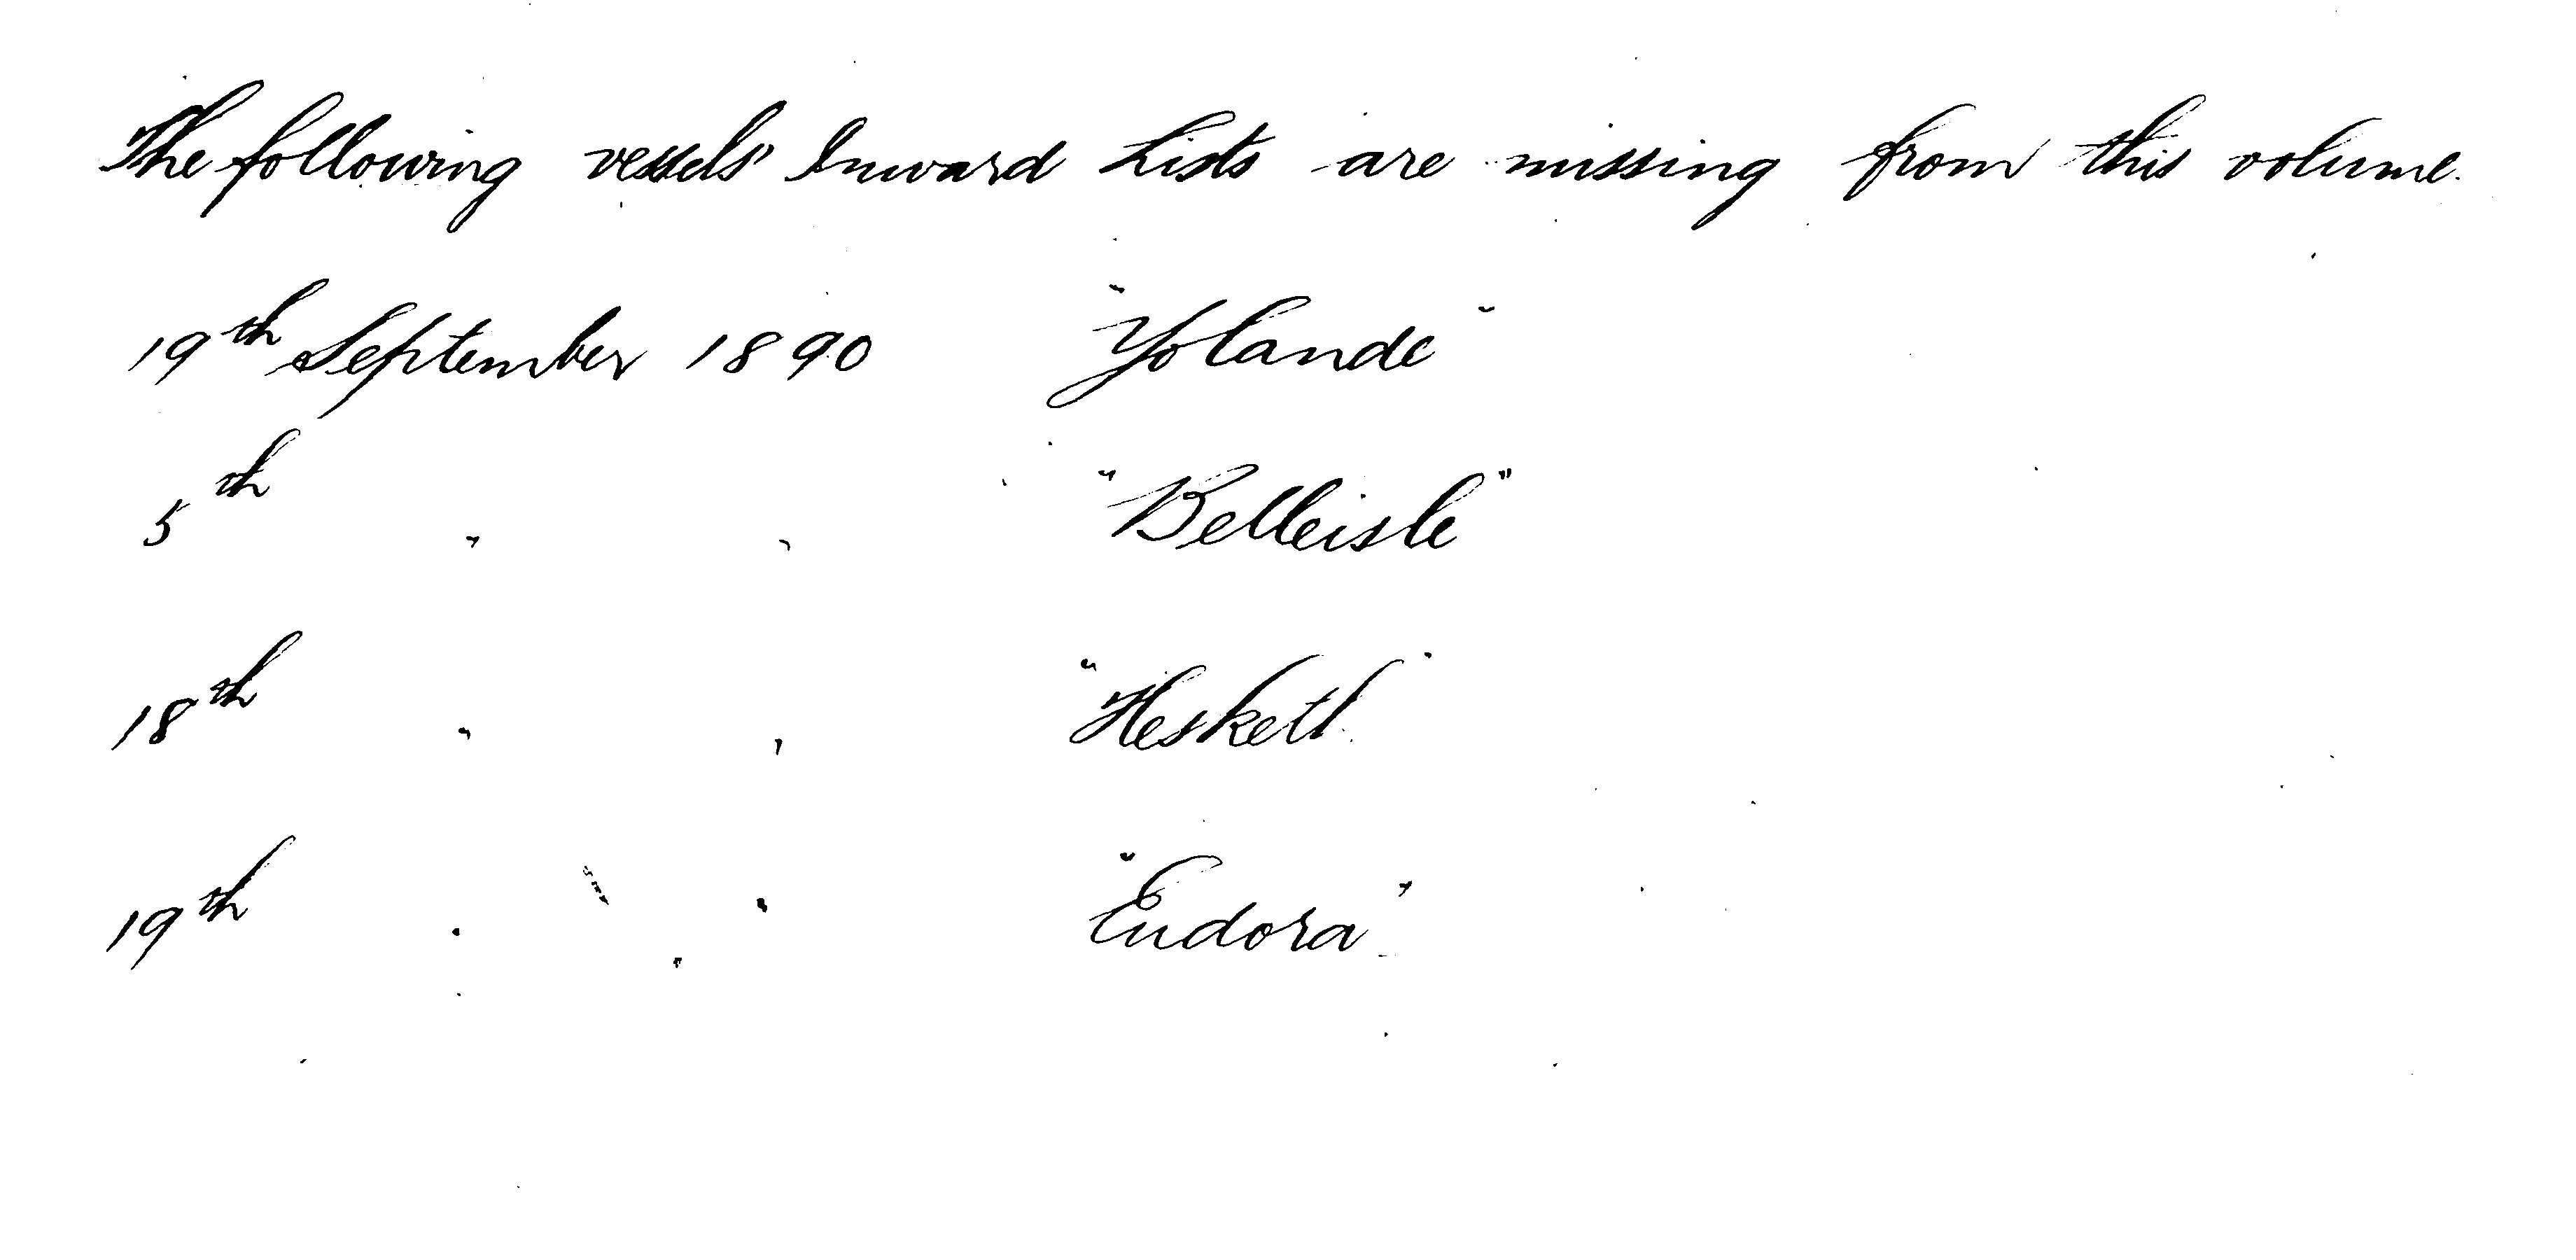 The following vessels' Inward Lists are missing from this volume.
19th September 1890 "Yolande"
5th " " "Belleisle"
18th " " "Hesketh"
19th " " "Eudora"